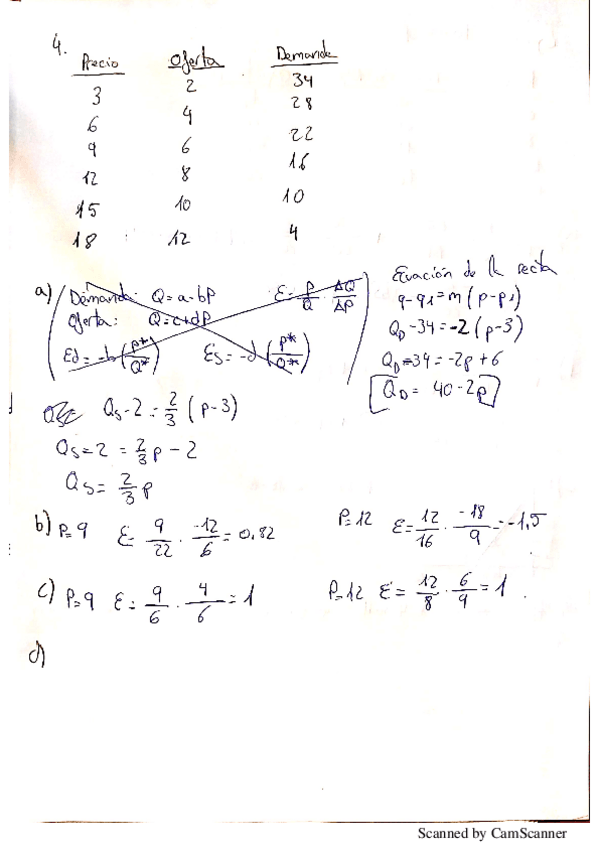 4.
Precio Oferta Demanda
3 2 34
6 4 28
9 6 22
12 8 16
15 10 10
18 12 4
a) Demanda: Q = a - bP E = P/Q · ΔQ/ΔP
Oferta: Q = c + dP
Ed = -b (P*/Q*) Es = -d (P*/Q*)
Ecuación de la recta
q - q1 = m (p - p1)
QD - 34 = -2 (p - 3)
QD - 34 = -2p + 6
QD = 40 - 2p
Qs - 2 = 2/3 (p - 3)
Qs = 2 = 2/3 p - 2
Qs = 2/3 p
b) P = 9 E = 9/22 · -12/6 = 0,82 P = 12 E = 12/16 · -18/9 = -1,5
c) P = 9 E = 9/6 · 4/6 = 1 P = 12 E = 12/8 · 6/9 = 1
d)
Scanned by CamScanner